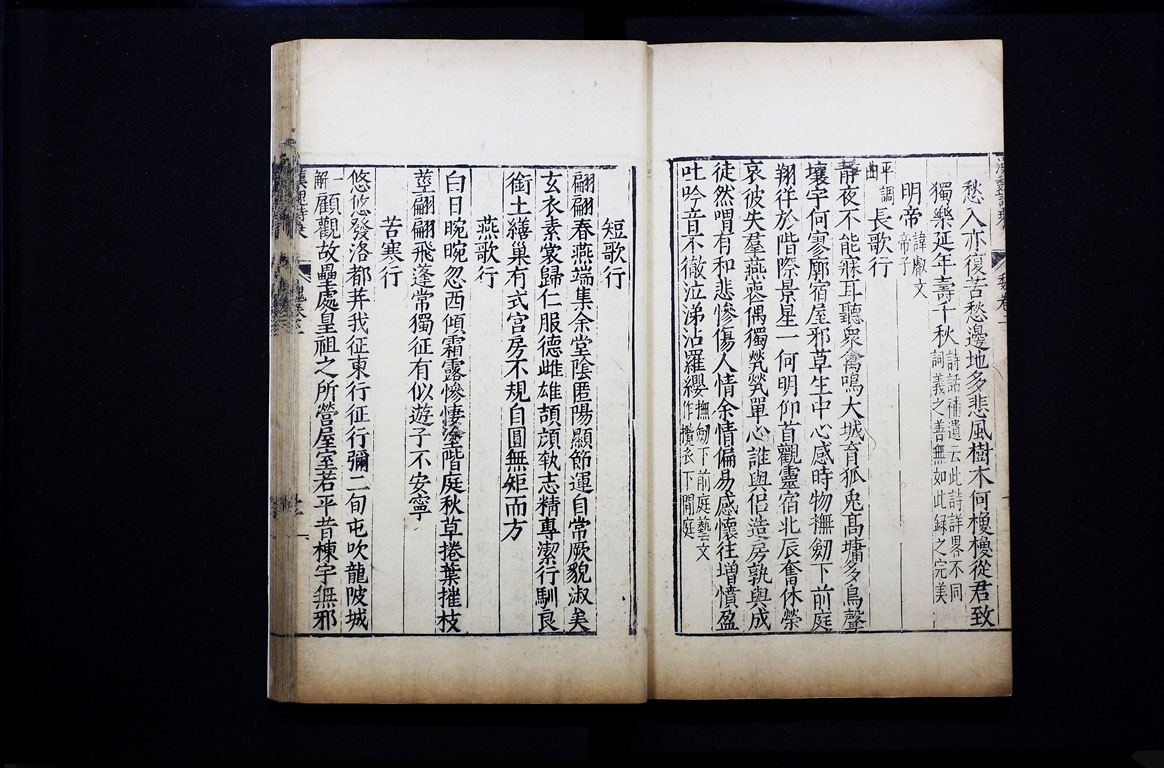 愁入亦復苦愁邊地多悲風樹木何橃橃從君致
獨樂延年壽千秋詩話補遺云此詩詳畧不同詞義之善無如此録之完美
明帝諱叡文帝子
平調曲長歌行
靜夜不能寐耳聽衆禽鳴大城育狐兎髙墉多鳥聲
壞宇何寥廓宿屋邪草生中心感時物撫劒下前庭
翔徉於階際景星一何明仰首觀靈宿北辰奮休榮
哀彼失羣燕喪偶獨煢煢單心誰與侣造房孰與成
徒然喟有和悲慘傷人情余情偏易感懷往増憤盈
吐吟音不徹泣涕沾羅纓撫劒下前庭藝文作攬衣下閒庭
短歌行
翩翩春燕端集余堂陰匿陽顯節運自常厥貌淑美
玄衣素裳歸仁服德雌雄頡頏執志精專潔行馴良
銜土繕巢有式宫房不規自圓無矩而方
燕歌行
白日晼晼忽西傾霜露慘悽塗階庭秋草捲葉摧枝
莖翩翩飛蓬常獨征有似遊子不安寧
苦寒行
悠悠發洛都荓我征東行征行彌二旬屯吹龍陂城
一解顧觀故壘處皇祖之所營屋室若平昔棟宇無邪